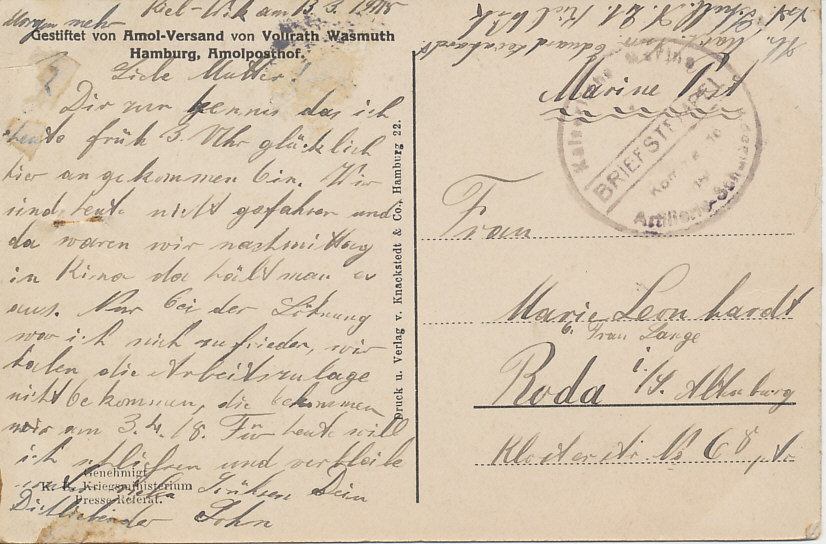 Morgen mehr
Kiel-Wik am 13.3.1918
Gestiftet von Amol-Versand von Vollrath Wasmuth
Hamburg, Amolposthof.
Liebe Mutter!
Dir zur kennis das ich
heute früh 3. Uhr glücklich
hier angekommen bin. Wir
sind heute nicht gefahren und
da waren wir nachmittag
in Kino da hält man es
aus. Nur bei der Löhnung
war ich nich zufrieden, wir
haben die Arbeitszulage
nicht bekommen, die bekommen
wir am 3.4.18. Für heute will
ich schliesen und verbleibe
Grühsen Dein
Dichliebender Sohn
Genehmigt
K. K. Kriegsministerium
Presse-Referat.
Druck u. Verlag v. Knackstedt & Co., Hamburg 22.
Leonhardt
Marine Post
Kaiserliche Marine
BRIEFSTEMPEL
Artillerie-Schul
Frau
Marie Leonhardt
b. Frau Lange
Roda i/S. Altenburg
Klosterstr. No 68, tr.